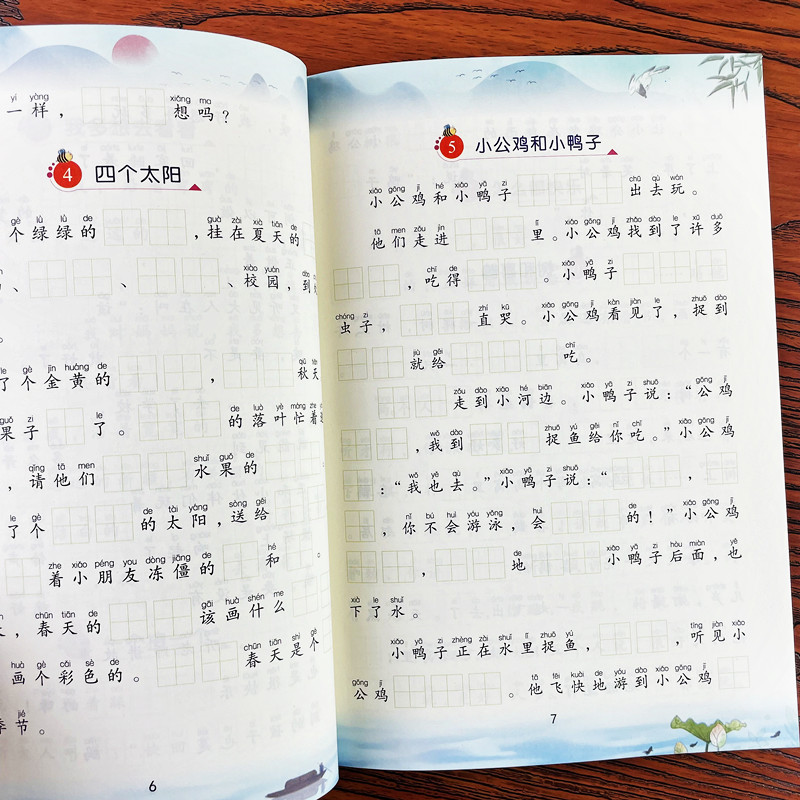 yí yàng xiǎng ma
一样，想吗？
4 四个太阳
gè lǜ lǜ de guà zài xià tiān de
个绿绿的，挂在夏天的
xiào yuán
、、、校园，到
le gè jīn huáng de qiū
了个金黄的，秋天
guǒ zi le de luò yè máng zhe
果子了。的落叶忙着
qǐng tā men shuǐ guǒ de
，请他们水果的
le gè de tài yáng sòng gěi
了个的太阳，送给
zhe xiǎo péng yǒu dòng jiāng de hé
着小朋友冻僵的和
chūn tiān de gāi huà shén me
，春天的该画什么
huà gè cǎi sè de chūn tiān shì gè
画个彩色的。春天是个
jié
季节。
6
5 小公鸡和小鸭子
xiǎo gōng jī hé xiǎo yā zi chū qù wán
小公鸡和小鸭子出去玩。
tā men zǒu jìn lǐ xiǎo gōng jī zhǎo dào le xǔ duō
他们走进里。小公鸡找到了许多
chī de xiǎo yā zi
，吃得。小鸭子
chóng zi zhí kū xiǎo gōng jī kàn jiàn le zhuō dào
虫子，直哭。小公鸡看见了，捉到
jiù gěi chī
就给吃。
zǒu dào xiǎo hé biān xiǎo yā zi shuō gōng jī
走到小河边。小鸭子说：“公鸡
wǒ dào zhuō yú gěi nǐ chī xiǎo gōng jī
，我到捉鱼给你吃。”小公鸡
wǒ yě qù xiǎo yā zi shuō
：“我也去。”小鸭子说：“，
nǐ bú huì yóu yǒng huì de xiǎo gōng jī
，你不会游泳，会的！”小公鸡
de xiǎo yā zi hòu miàn yě
，地小鸭子后面，也
xià le shuǐ
下了水。
xiǎo yā zi zhèng zài shuǐ lǐ zhuō yú tīng jiàn xiǎo
小鸭子正在水里捉鱼，，听见小
gōng jī tā fēi kuài de yóu dào xiǎo gōng jī
公鸡。他飞快地游到小公鸡
7